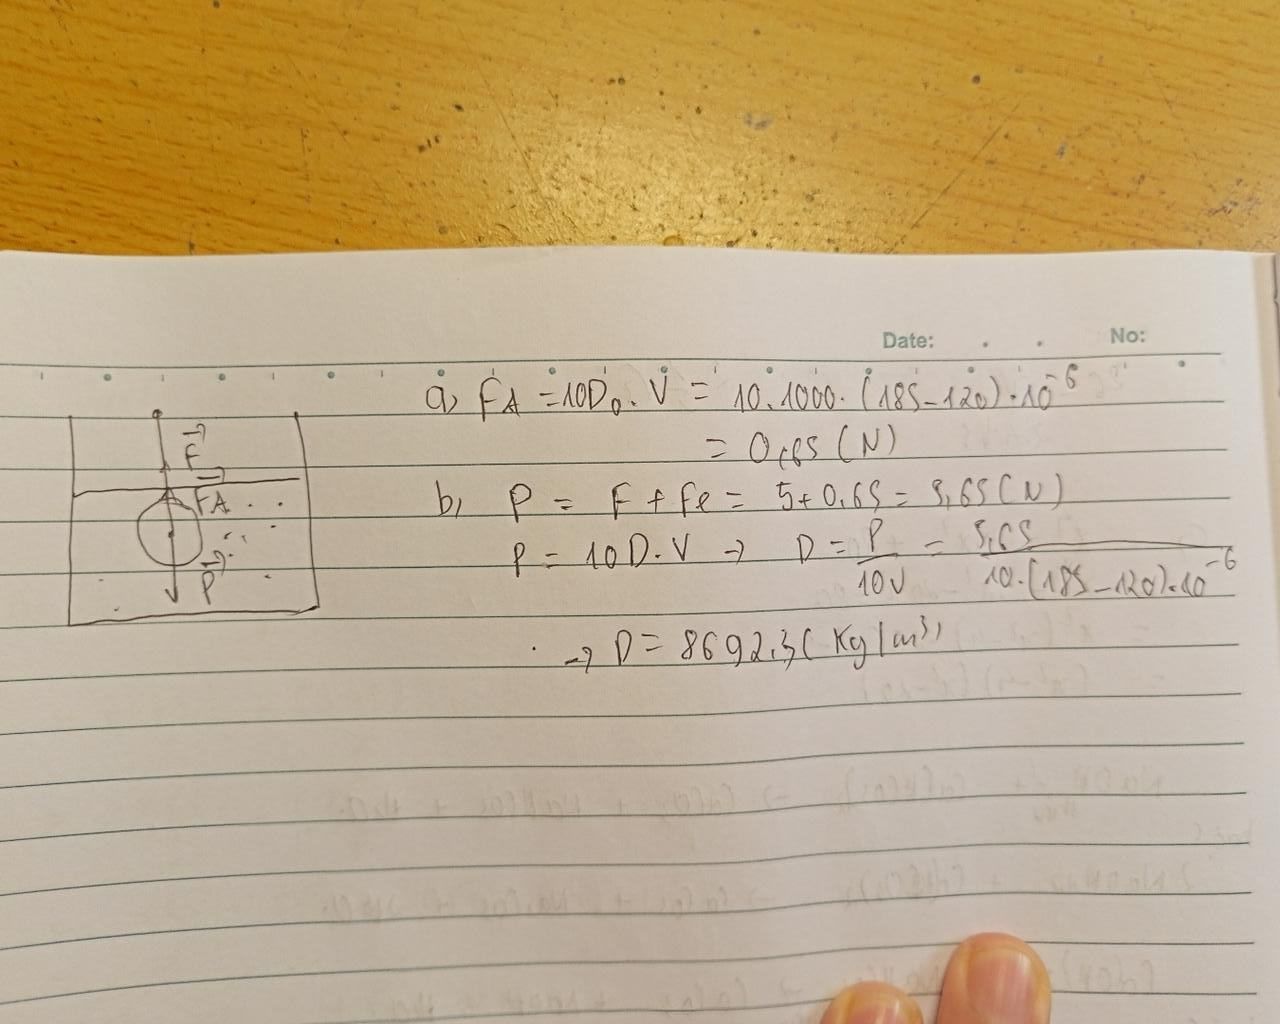 Date: . . No:
a, FA = 10D₀.V = 10.1000.(185-120).10⁻⁶
= 0,65 (N)
F
FA
P
b, P = F + Fe = 5+0.65 = 5,65 (N)
P = 10D.V → D = P/10V = 5,65/10.(185-120).10⁻⁶
→ D = 8692,3 (Kg/m³)